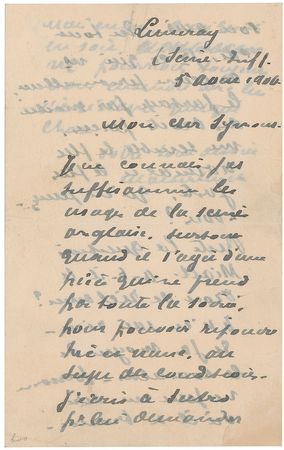 Limeray
(Seine-Inf.
5 Avril 1904
Mon cher Symons.
Je ne connais pas
suffisamment les
usages de la scène
anglaise, surtout
quand il s'agit d'une
pièce qui ne prend
pas toute la soirée,
pour pouvoir répondre
au
sujet de conditions.
J'écris à
p. lui demander